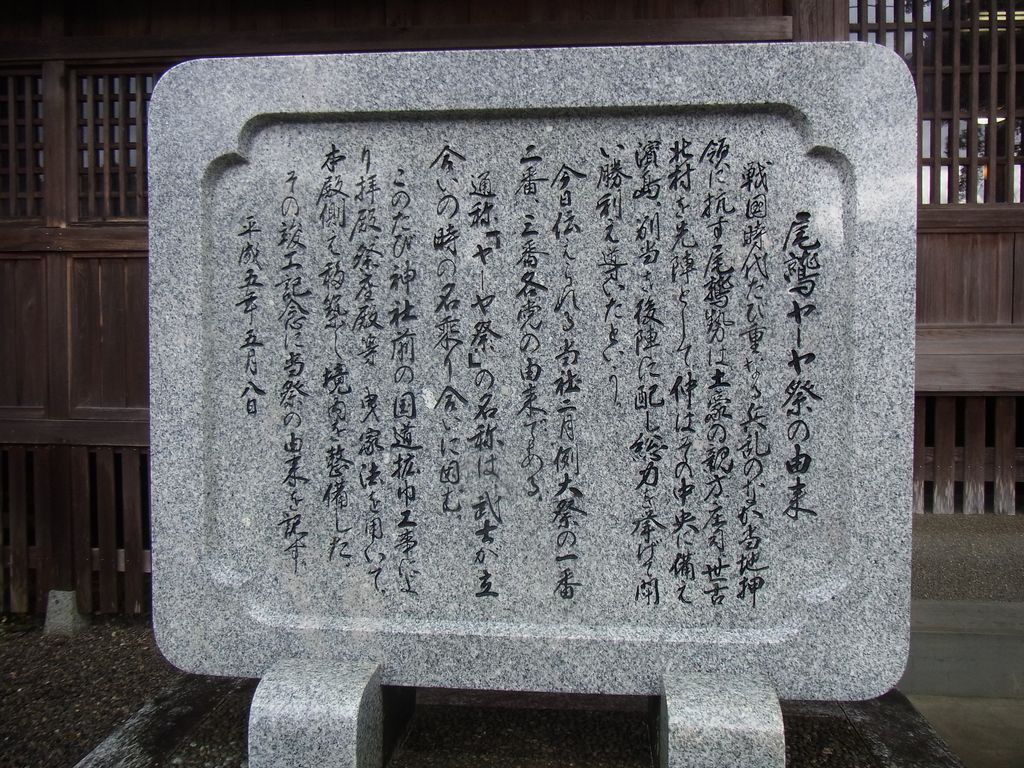 尾鷲ヤーヤ祭の由来
戦国時代たび重なる兵乱のなか当地押
領に抗す尾鷲勢は土豪の親方庄司世古
北村を先陣として仲はその中央に備え
濱島、別当を後陣に配し総力を挙げて闘
い勝利を導いたという
今日伝えられる当社二月例大祭の一番
二番、三番各党の由来である
通称「ヤーヤ祭」の名称は、武士が立
合いの時の名乗り合いに因む
このたび神社前の国道拡巾工事によ
り拝殿祭器殿等曳家法を用いて
本殿側て移築し境内を整備した
その竣工記念に当祭の由来を記す
平成五年五月八日